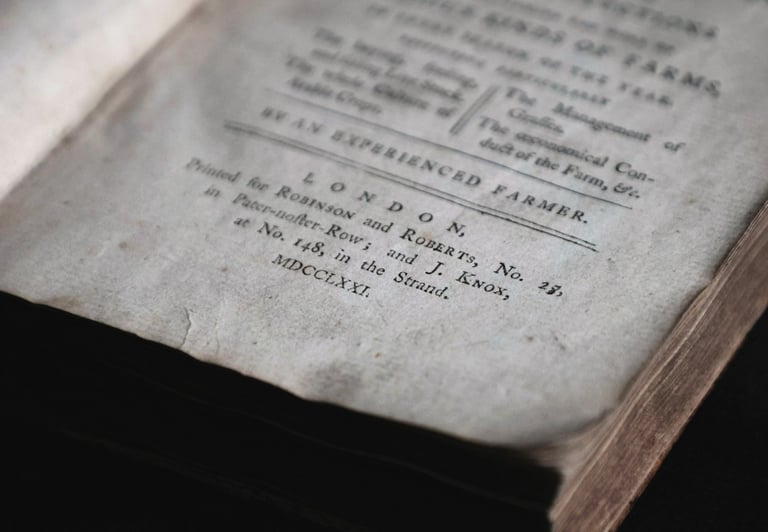 KINDS OF FARMS,
OF THE YEAR.
PARTICULARLY
The buying, feeding,
and selling Live Stock.
The whole Culture of
Arable Crops.
The Management of
Graſſes.
The œconomical Con-
duct of the Farm, &c.
BY AN EXPERIENCED FARMER.
LONDON,
Printed for ROBINSON and ROBERTS, No. 25,
in Pater-noſter-Row; and J. KNOX,
at No. 148, in the Strand.
MDCCLXXI.